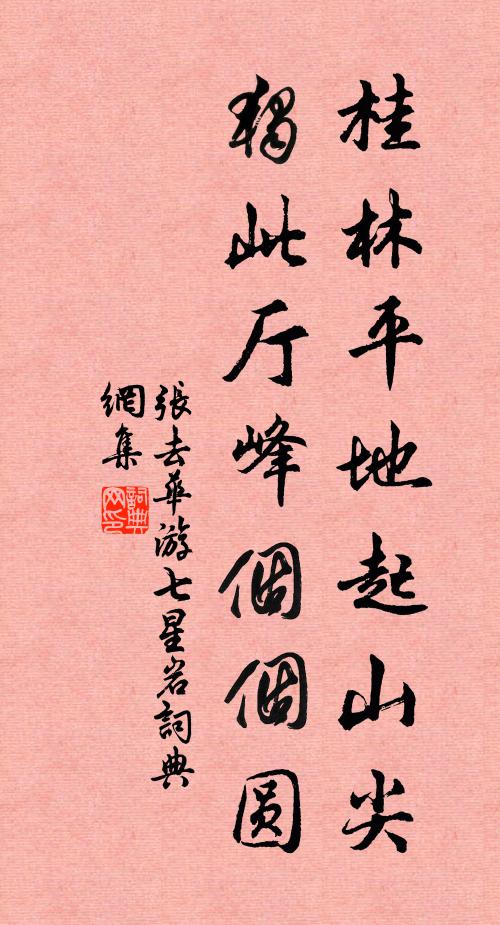 桂林平地起山尖
獨此厅峰個個圆
張去華游七星岩詞典
網集
詞典
网印